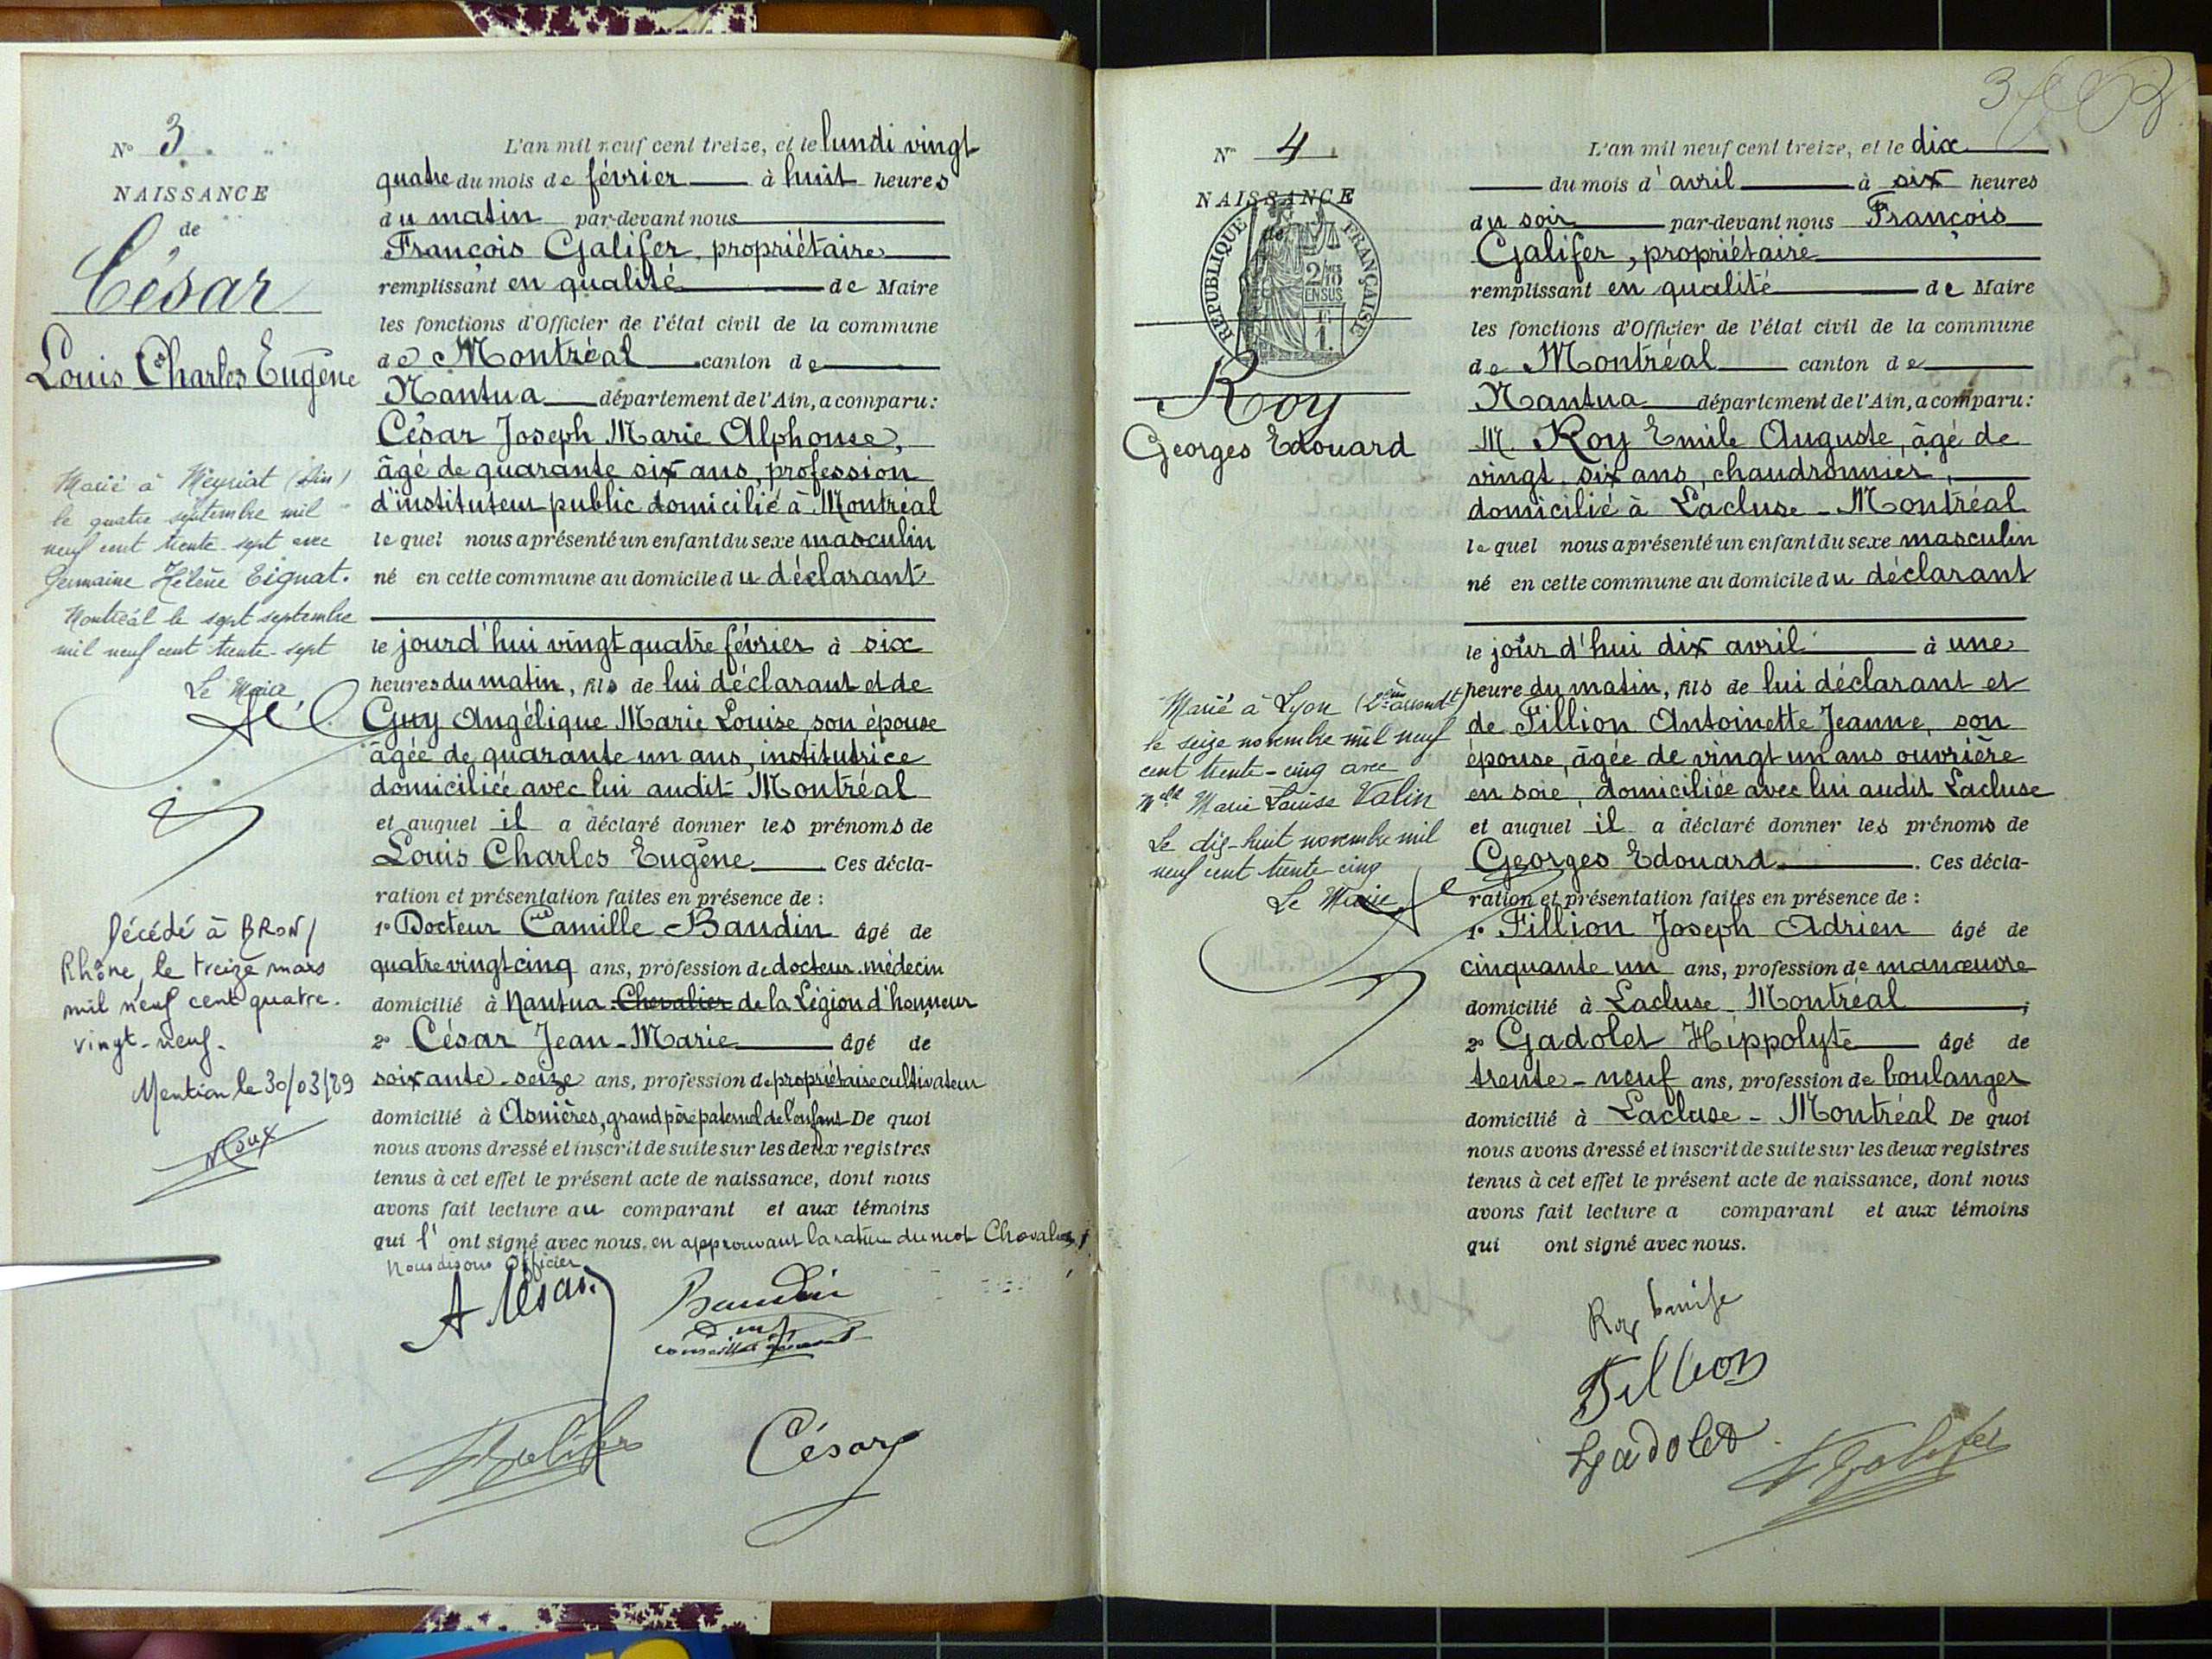 N° 3
NAISSANCE
de
César
Louis Charles Eugène
Marié à Meyriat (Ain)
le quatre septembre mil
neuf cent trente-sept avec
Germaine Hélène Tignat.
Montréal le sept septembre
mil neuf cent trente-sept
Le Maire
Décédé à BRON/
Rhône, le treize mars
mil neuf cent quatre-
vingt-neuf.
Mention le 30/03/89
L'an mil neuf cent treize, et le lundi vingt
quatre du mois de février à huit heures
du matin par-devant nous
François Galifer, propriétaire
remplissant en qualité de Maire
les fonctions d'Officier de l'état civil de la commune
de Montréal canton de
Nantua département de l'Ain, a comparu :
César Joseph Marie Alphonse,
âgé de quarante six ans, profession
d'instituteur public domicilié à Montréal
lequel nous a présenté un enfant du sexe masculin
né en cette commune au domicile du déclarant
le jourd'hui vingt quatre février à six
heures du matin, fils de lui déclarant et de
Guy Angélique Marie Louise, son épouse
âgée de quarante un ans, institutrice
domiciliée avec lui audit Montréal
et auquel il a déclaré donner les prénoms de
Louis Charles Eugène Ces décla-
ration et présentation faites en présence de :
1° Docteur Camille Baudin âgé de
quatre vingt cinq ans, profession de docteur médecin
domicilié à Nantua Chevalier de la Légion d'honneur
2° César Jean-Marie âgé de
soixante-seize ans, profession de propriétaire cultivateur
domicilié à Asnières, grand père paternel de l'enfant De quoi
nous avons dressé et inscrit de suite sur les deux registres
tenus à cet effet le présent acte de naissance, dont nous
avons fait lecture au comparant et aux témoins
qui l'ont signé avec nous. en approuvant la rature du mot Chevalier
Nous disons Officier
A César
Baudin
conseiller général
F Galifer
César
N° 4
NAISSANCE
de
RÉPUBLIQUE FRANÇAISE
2/10
EN SUS
Roy
Georges Edouard
Marié à Lyon (2ème arrondt)
le seize novembre mil neuf
cent trente-cinq avec
Melle Marie Louise Valin
Le dix-huit novembre mil
neuf cent trente-cinq
Le Maire
3
L'an mil neuf cent treize, et le dix
du mois d'avril à six heures
du soir par-devant nous François
Galifer, propriétaire
remplissant en qualité de Maire
les fonctions d'Officier de l'état civil de la commune
de Montréal canton de
Nantua département de l'Ain, a comparu :
M. Roy Emile Auguste, âgé de
vingt six ans, chaudronnier,
domicilié à Lacluse - Montréal
lequel nous a présenté un enfant du sexe masculin
né en cette commune au domicile du déclarant
le jour d'hui dix avril à une
heure du matin, fils de lui déclarant et
de Fillion Antoinette Jeanne, son
épouse, âgée de vingt un ans ouvrière
en soie, domiciliée avec lui audit Lacluse
et auquel il a déclaré donner les prénoms de
Georges Edouard. Ces décla-
ration et présentation faites en présence de :
1° Fillion Joseph Adrien âgé de
cinquante un ans, profession de manœuvre
domicilié à Lacluse - Montréal ;
2° Gadolet Hippolyte âgé de
trente-neuf ans, profession de boulanger
domicilié à Lacluse - Montréal De quoi
nous avons dressé et inscrit de suite sur les deux registres
tenus à cet effet le présent acte de naissance, dont nous
avons fait lecture a comparant et aux témoins
qui ont signé avec nous.
Roy Emile
Fillion
Gadolet
F Galifer